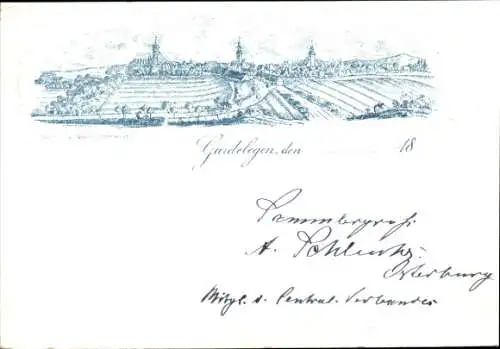 Gardelegen, den 18
Sammlergruß
A.
Osterburg
Mitgl. d. Central-Verbandes